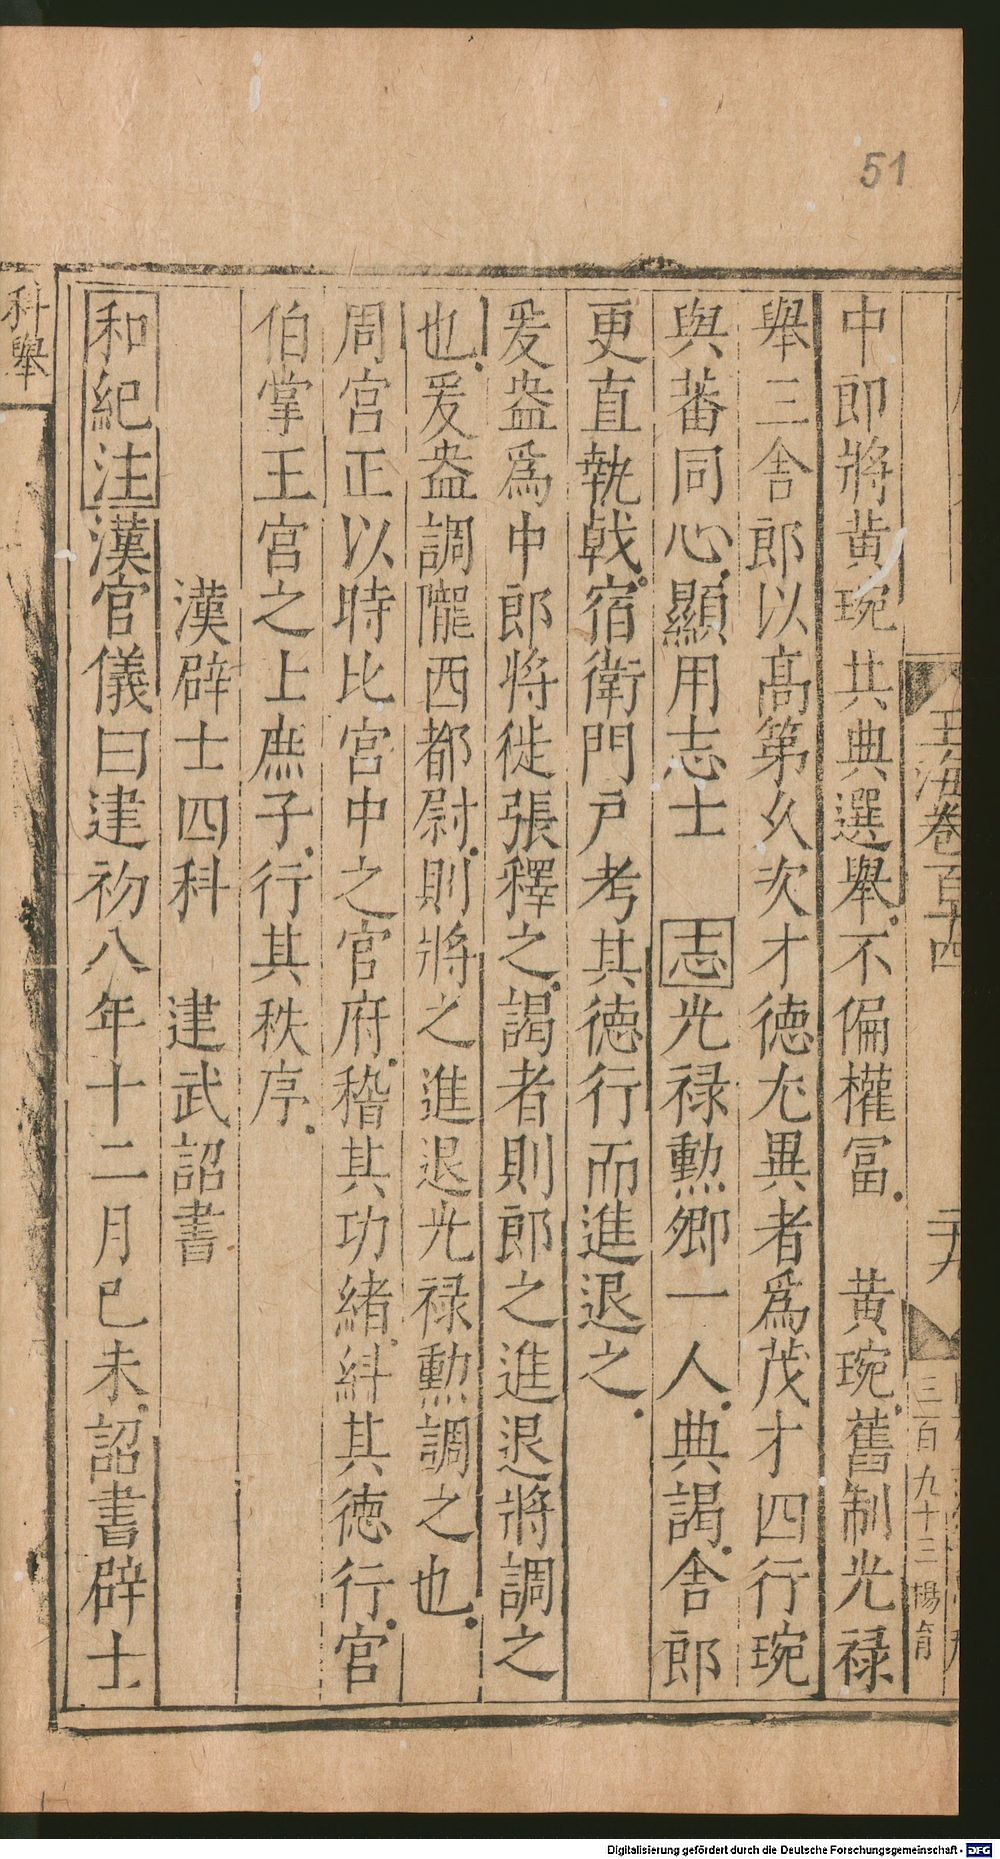 51
玉海卷百十四
二十九
三百九十三 楊肯
中郎將黃琬共典選舉不偏權冨 黃琬舊制光禄
舉三舍郎以高第久次才德尤異者爲茂才四行琬
與蕃同心顯用志士 志光禄勲卿一人典謁舍郎
更直執戟宿衛門戸考其德行而進退之
爰盎爲中郎將徙張釋之謁者則郎之進退將調之
也爰盎調隴西都尉則將之進退光禄勲調之也
周宮正以時比宮中之官府稽其功緒糾其德行官
伯掌王宮之上庶子行其秩序
漢辟士四科 建武詔書
和紀注漢官儀曰建初八年十二月己未詔書辟士
科舉
Digitalisierung gefördert durch die Deutsche Forschungsgemeinschaft - DFG